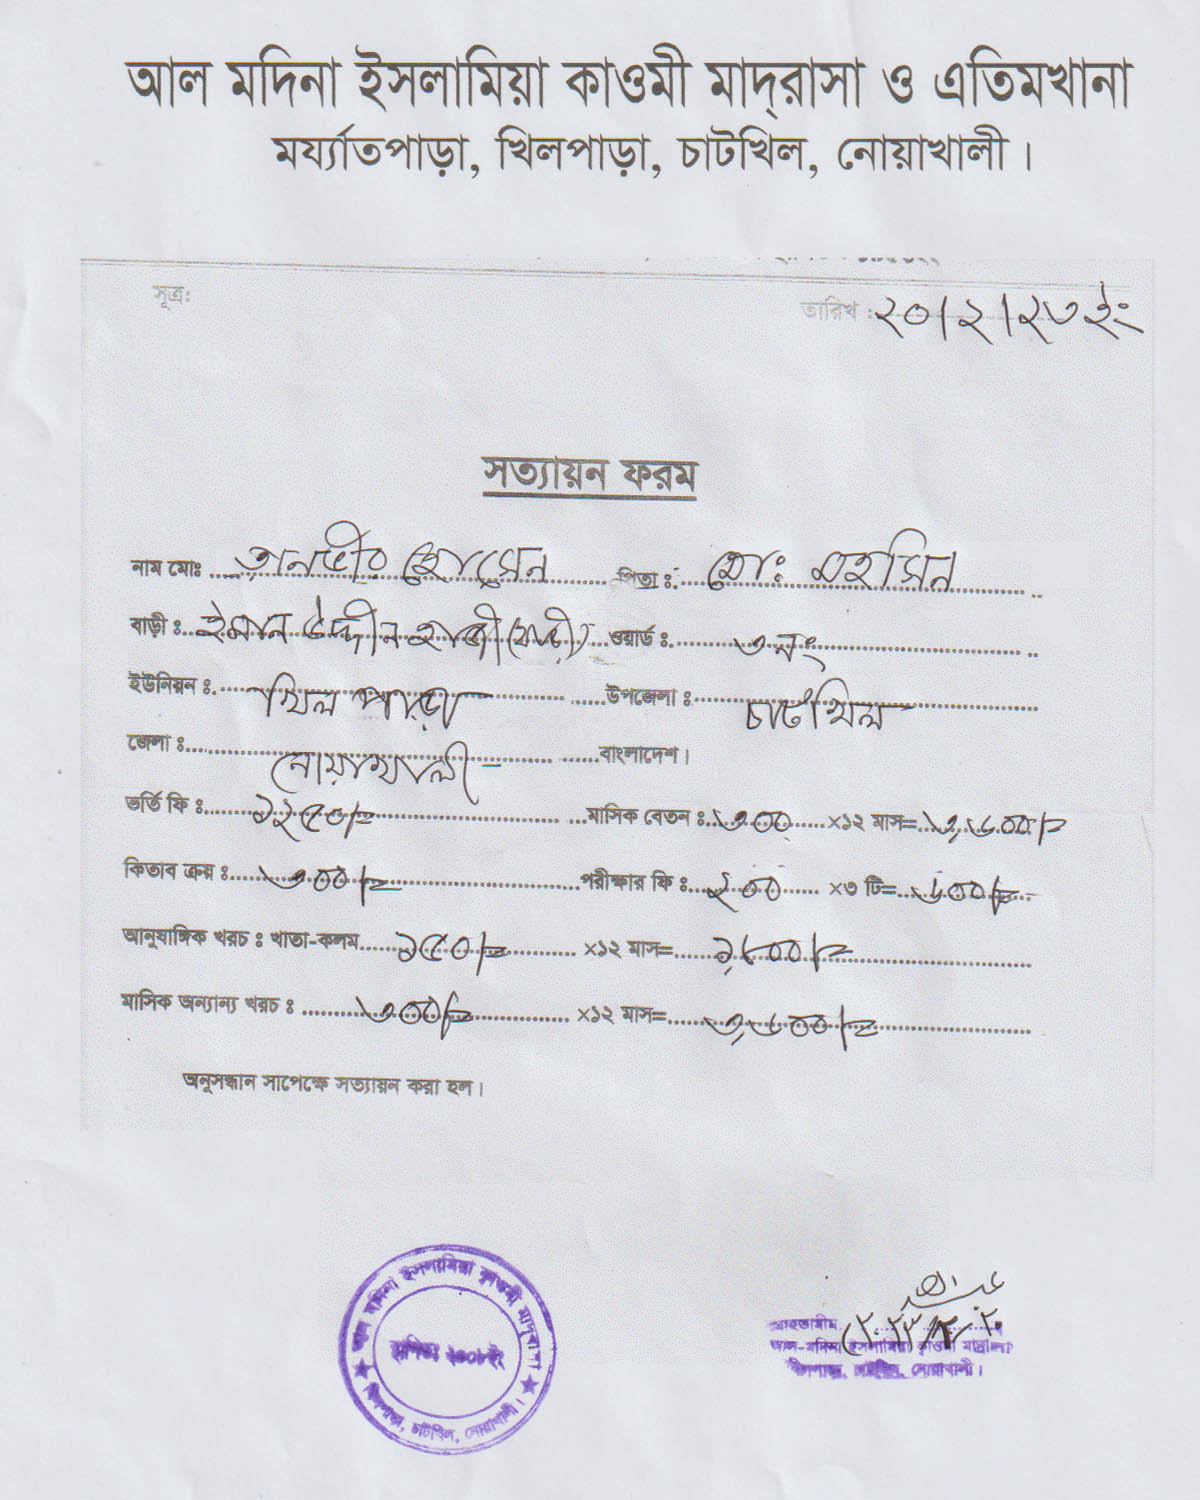 আল মদিনা ইসলামিয়া কাওমী মাদ্‌রাসা ও এতিমখানা
মর্য্যাতপাড়া, খিলপাড়া, চাটখিল, নোয়াখালী।
সূত্র:
তারিখ : ২০/২/২৩ ইং
সত্যায়ন ফরম
নাম মোঃ তানভীর হোসেন পিতা : মোঃ মহসিন
বাড়ী : ইমান উদ্দীন হাজী বাড়ী ওয়ার্ড : ৩ নং
ইউনিয়ন : খিল পাড়া উপজেলা : চাটখিল
জেলা : নোয়াখালী বাংলাদেশ।
ভর্তি ফি : ১২৫০/= মাসিক বেতন : ৩০০ ×১২ মাস= ৩,৬০০/=
কিতাব ক্রয় : ৩০০/= পরীক্ষার ফি : ২০০ ×৩ টি= ৬০০/=
আনুষাঙ্গিক খরচ : খাতা-কলম ১৫০/= ×১২ মাস= ১,৮০০/=
মাসিক অন্যান্য খরচ : ৩০০/= ×১২ মাস= ৩,৬০০/=
অনুসন্ধান সাপেক্ষে সত্যায়ন করা হল।
আল মদিনা ইসলামিয়া কাওমী মাদ্‌রাসা
স্থাপিতঃ
খিলপাড়া, চাটখিল, নোয়াখালী।
মোহতামীম
আল-মদিনা ইসলামিয়া কাওমী মাদ্রাসা
খিলপাড়া, চাটখিল, নোয়াখালী।